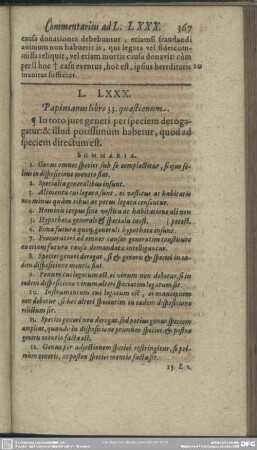 Commentarius ad L. LXXX. 367
causa donationes debebuntur, etiamsi fraudandi
animum non habuerit is, qui legata vel fideicom-
missa reliquit, vel etiam mortis causa donavit: cùm
per ll hoc casu eventus, hoc est, ipsius hereditatis 20
inanitas sufficiat.
L. LXXX.
Papinianus libro 33. quæstionum.
¶ In toto jure generi per speciem deroga-
gatur: & illud potissimùm habetur, quod ad
speciem directum est.
SUMMARIA.
1. Genus omnes species sub se complectitur, si ejus so-
lius in dispositione mentio fiat.
2. Specialia generalibus insunt.
3. Alimenta cui legata sunt, ei vestitus ac habitatio
non minus quàm cibus ac potus legata censentur.
4. Hominis corpus sine vestitu ac habitatione ali non
5. Hypotheca generali & specialia insunt. [potest.
6. Bona futura quoq; generali hypotheca insunt.
7. Procuratori ad omnes causas generatim constituto
ac etiam futura causa demandata intelliguntur.
8. Species generi derogat, si & generis & speciei in ea-
dem dispositione mentio fiat.
9. Panum cui legatum est, ei vinum non debetur, si in
eadem dispositione vinum alteri speciatim legatum sit.
10. Instrumentum cui legatum est, ei mancipium
non debetur, si hoc alteri speciatim in eadem dispositione
relictum sit.
11. Species generi non derogat, sed potius genus speciem
ampliat, quando in dispositione primùm speciei, & postea
generis mentio facta est.
12. Genus per adjectionem speciei restringitur, si pri-
mùm generis, ac postea speciei mentio facta sit.
13. L. 2.